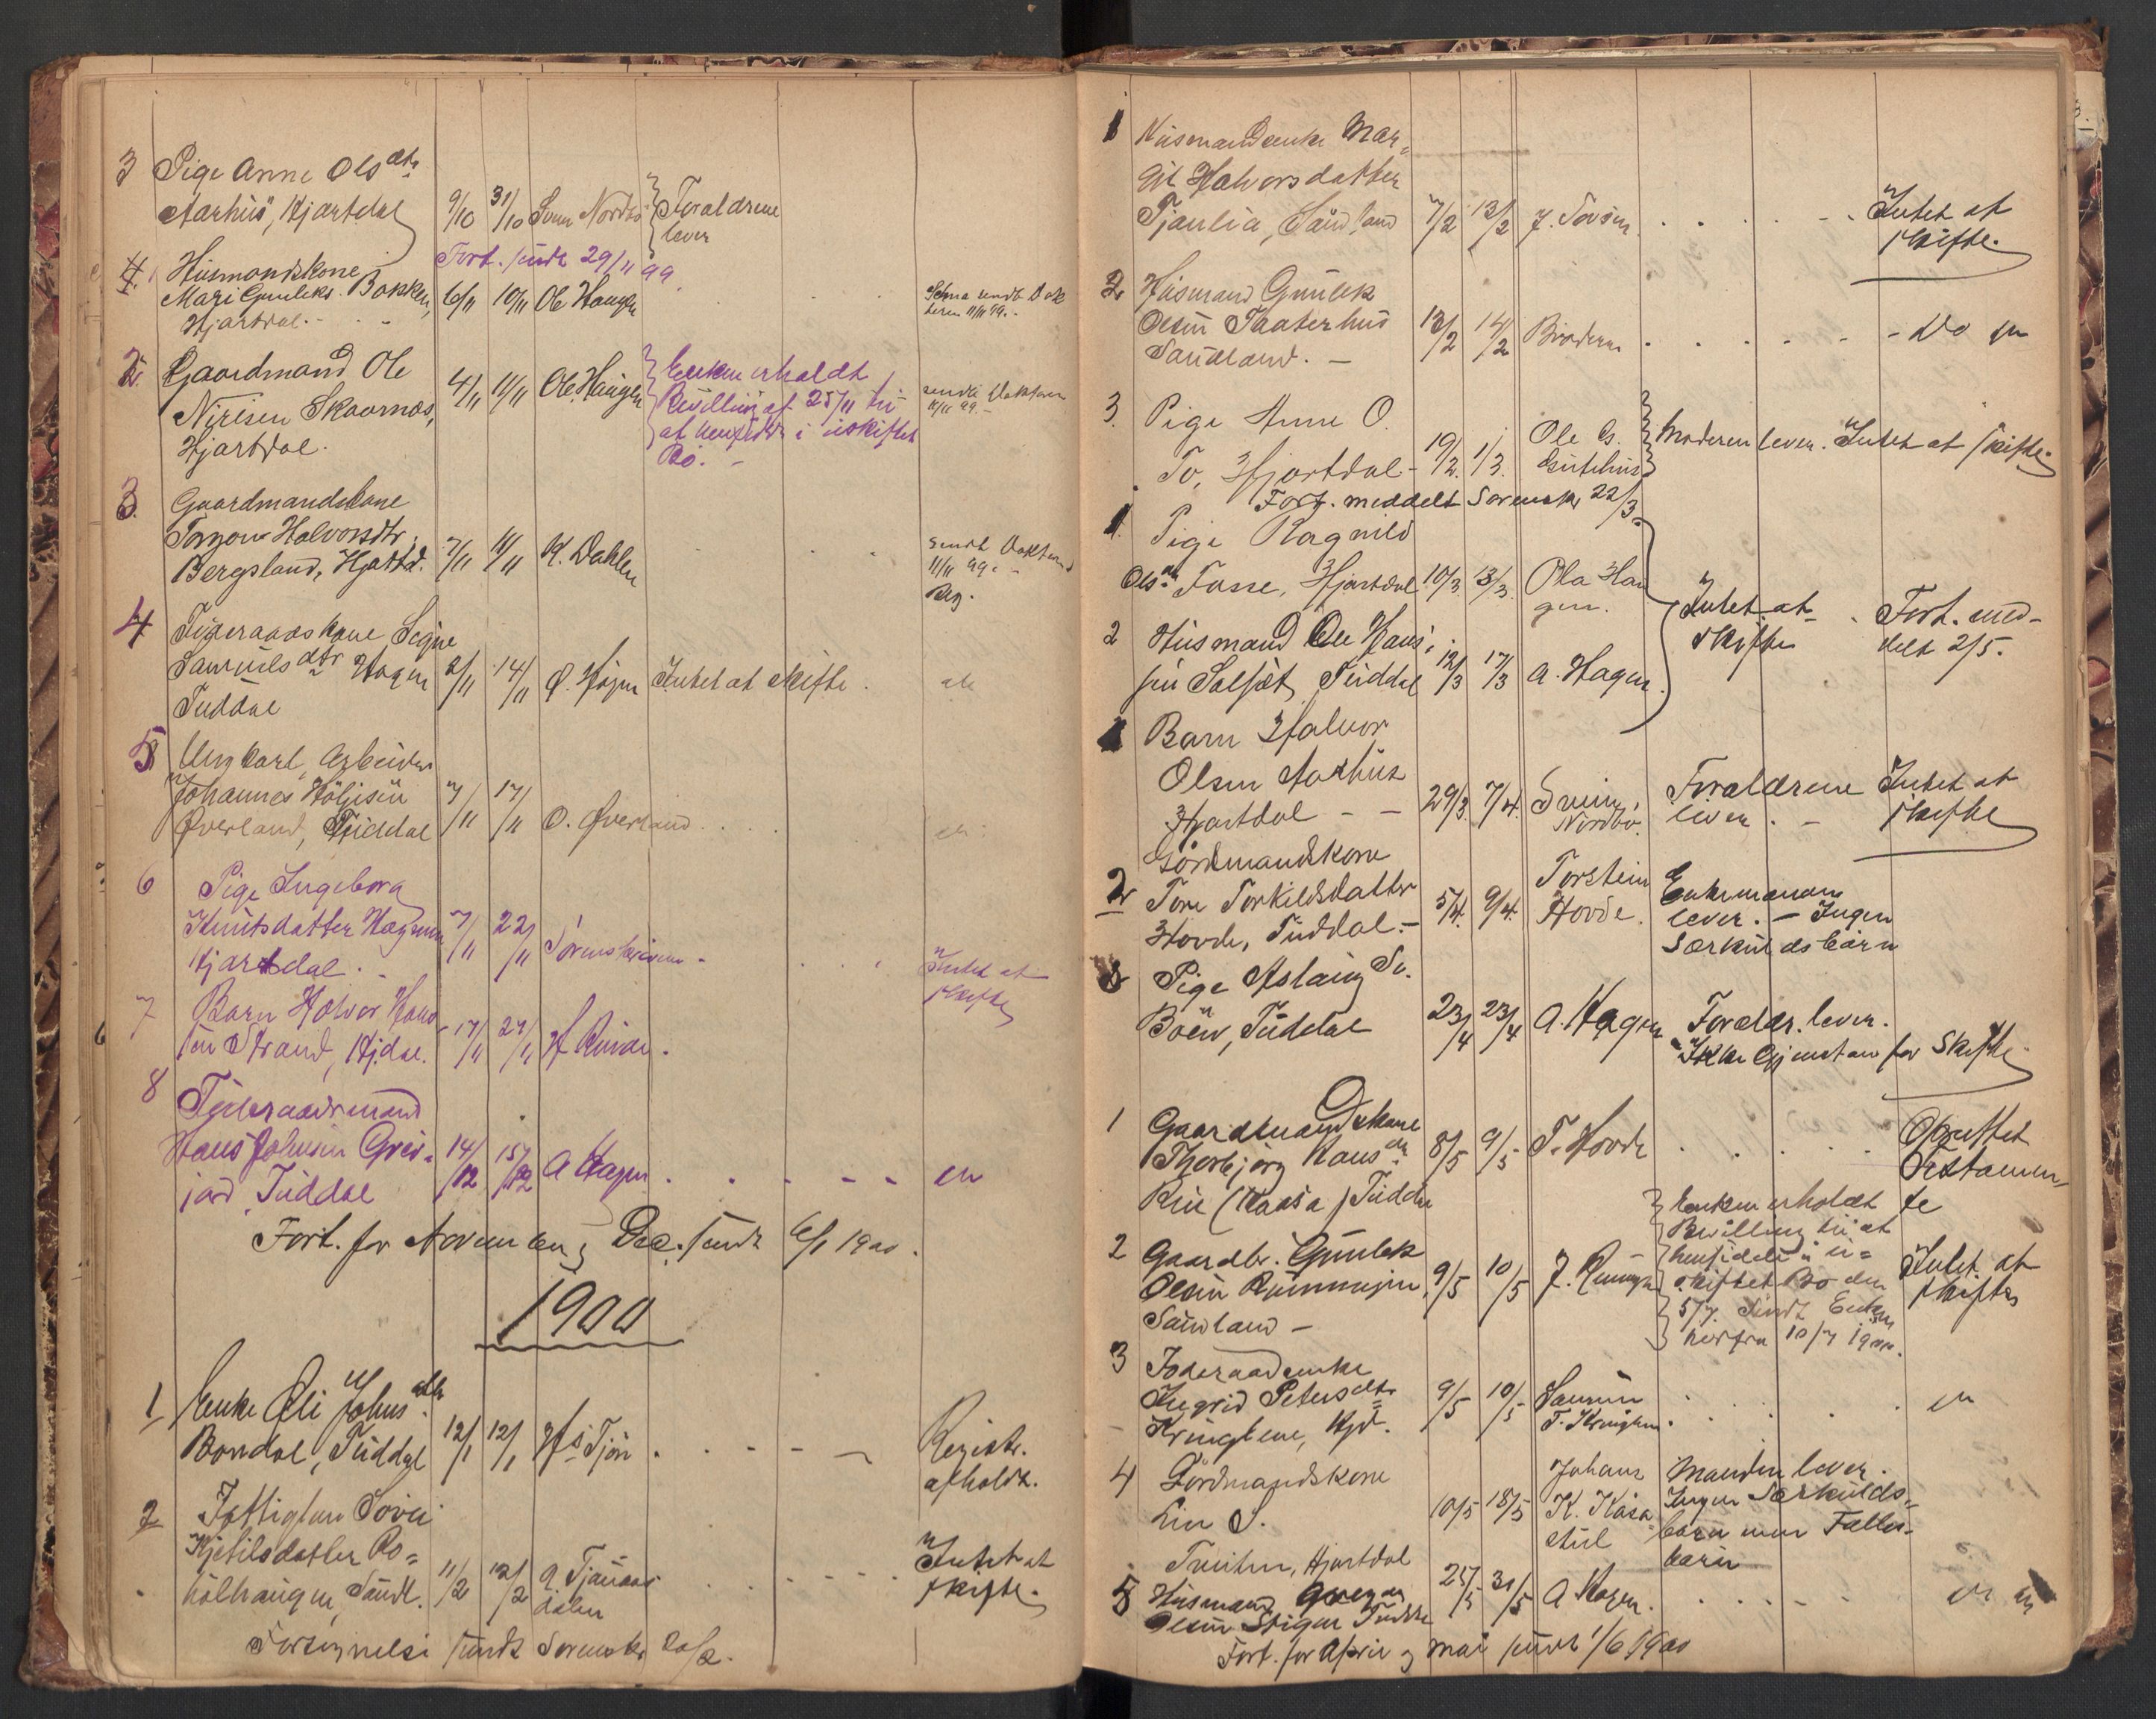 3 Pige Anne Olsdtr
Aarhus, Hjartdal 9/10 31/10 Svein Nordbö Foraldrene
lever
Fort. sendt 29/11 99.
4. Husmandskone
Mari Gunleks. Bakken, 6/11 10/11 Ole Haugen . . Schma sendt Dok
Hjartdal. - teren 11/11 99. -
2. Gaardmand Ole
Nirisen Skaarnæs, 4/11 11/11 Ole Haugen Enken erholdt
Hjartdal. Bevilling af 25/11 til sendt Doktoren
at hensidde i uskiftet 11/11 99. -
Bo. -
3. Gaardmandskone
Torgon Halvorsdtr.
Bergsland, Hjartd. 7/11 11/11 K. Dahlen . . . sendt Doktoren
11/11 99. -
Reg.
4 Föderaadskone Signe
Samuelsdtr Hagen 2/11 14/11 Ø. Høgen Intet at skifte .
Tuddal
5 Ungkarl, Arbeider
Johannes Höljesen 7/11 17/11
Øverland, Tuddal O. Øverland . . .
6 Pige Ingeborg
Knutsdatter Hagen 7/11 22/11 Sorenskriveren - . . . Intet at
Hjartdal. - skifte
7 Barn Halvor Hans
sen Strand, Hjdal. 17/11 27/11 H Rinde .
8 Föderaadsmand
Hans Johnsen Grös-
jord, Tuddal 14/12 15/12 A Hagen . . . - - -
Fort. for November og Dec. sendt 6/1 1900.
1900
1 Enke Eli Johnsdtr.
Bondal, Tuddal 12/1 12/1 Hs Tjön . . . - - Registr.
afholdt.
2 Fattiglem Sovei
Kjetilsdatter Ro=
holthaugen, Sandl. 11/2 12/2 G. Tjönaas . . . . Intet at
dalen skifte.
Fortegnelse sendt Sorenskr. 20/2.
1 Husmandsenke Mar,
git Halvorsdatter
Tjaulia, Sandland 7/2 13/2 J. Sovsen . . . . - . Intet at
skifte.
2 Husmand Gunlek
Olsen Taaterhus 13/2 14/2 Broderen . . . . - - Do
Saudland. -
3. Pige Anne O.
To, Hjartdal - 19/2. 1/3. Ole Gs. Moderen lever. Intet at skifte.
Fort. meddelt Sorenskr 22/3.
1. Pige Ragnild
Olsdtr Fosse, Hjartdal 10/3. 13/3. Ola Hau
gen. Intet at . Fort. med-
2 Husmand Ole Hans, skifte delt 2/5.
sen Solsjöt, Tuddal 12/3 17/3 A. Hagen.
1 Barn Halvor
Olsen Aarhus
Hjartdal - - 29/3. 7/4. Svein Foraldrene Intet at
Nordbö. lever. - skifte
Gördmandskone
2 Tore Torkildsdatter 5/4. 9/4. Torstein Enkemanden
Hovde, Tuddal. - Hovde. lever. - Ingen
Særkuldsbarn
3 Pige Aslaug Sv.
Böen, Tuddal 23/4 23/4 A. Hagen Foraldr. lever.
Ikke Gjenstan for Skifte.
1 Gaardmandskone
Thorbjörg Hansdtr 8/5 9/5 T. Hovde . . . . . Oprettet
Rui (Kaasa) Tuddal Testamen,
te
Enken erholdt
Bevilling til at
2 Gaardbr. Gunlek hensidde i u=
Olsen Rummejen, 9/5 10/5 J. skiftet Bo den Intet at
Saudland - 5/7. Sendt Enken skifte
herfra 10/7 1900.
3 Föderaadsenke
Ingrid Petersdtr 9/5 10/5 Samun . . . . .
Kringlene, Hjd. T. Kringlem.
4 Gördmandskone Johans Manden lever.
Liv S. 10/5 18/5 K. Kása Ingen Særkulds-
stul barn men Fælles-
Tveiten, Hjartdal barn
5 Husmand Gregar 25/5 31/5 A Hagen . . . .
Olsen Stigen Tuddal
Fort. for April og Mai sendt 1/6 1900